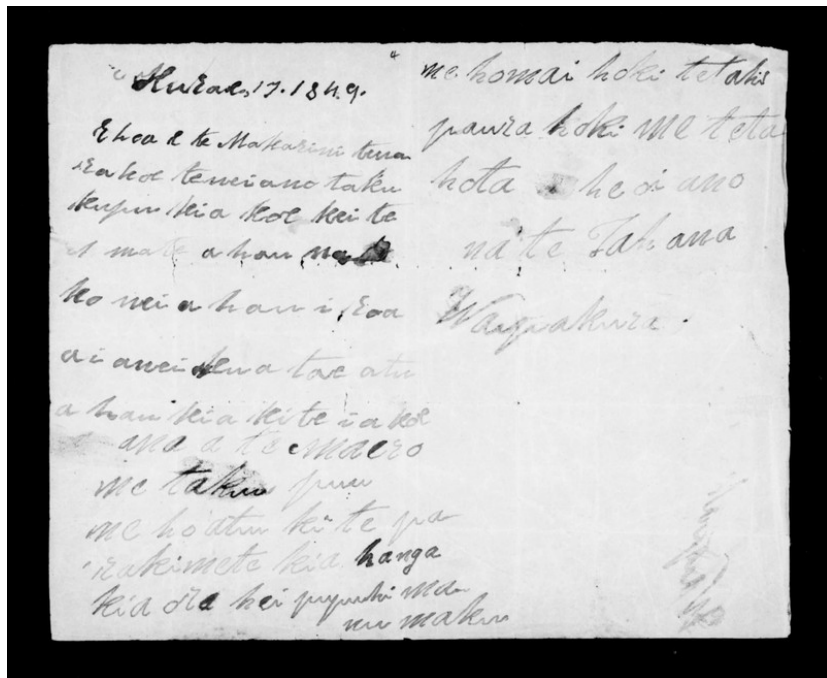 Hurae, 17. 1849.
E hoa e te Makarini tena
ra koe tenei ano taku
kupu kia koe kei te
mate ahau
ko nei ahau i roa
ai anei kua tae atu
ahau kia kite i a koe
ana a te maero
me taku puu
me hoatu ki te pa
rakimete kia hanga
kia ora hei pupuhi ma
nu maku
me homai hoki tetahi
paura hoki me teta
hota heoi ano
na te Tahana